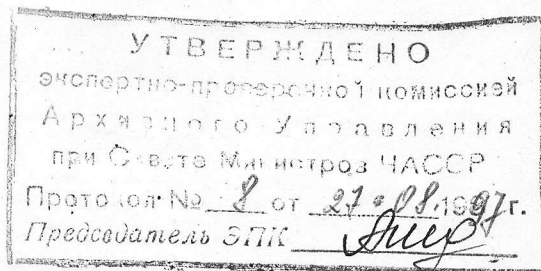 УТВЕРЖДЕНО
экспертно-проверочной комиссией
Архивного Управления
при Совете Министров ЧАССР
Протокол № 8 от 27.08.1997 г.
Председатель ЭПК